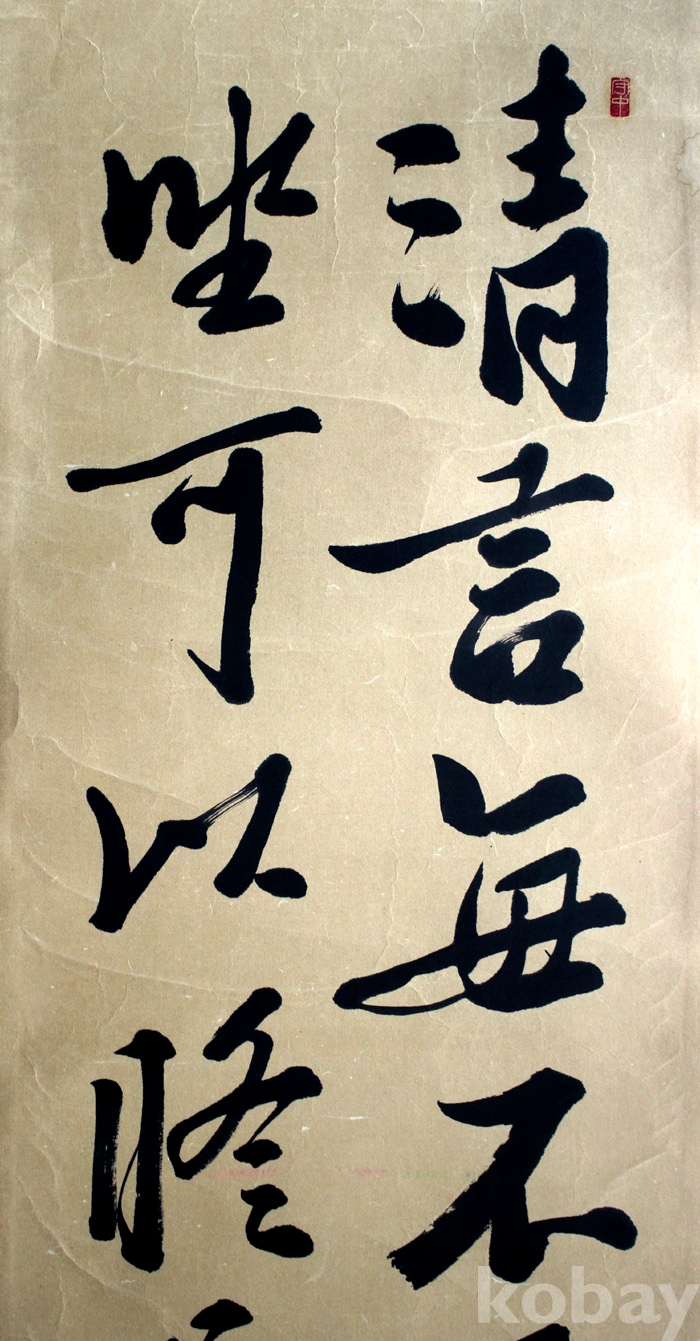 清言每不
坐可以
kobay